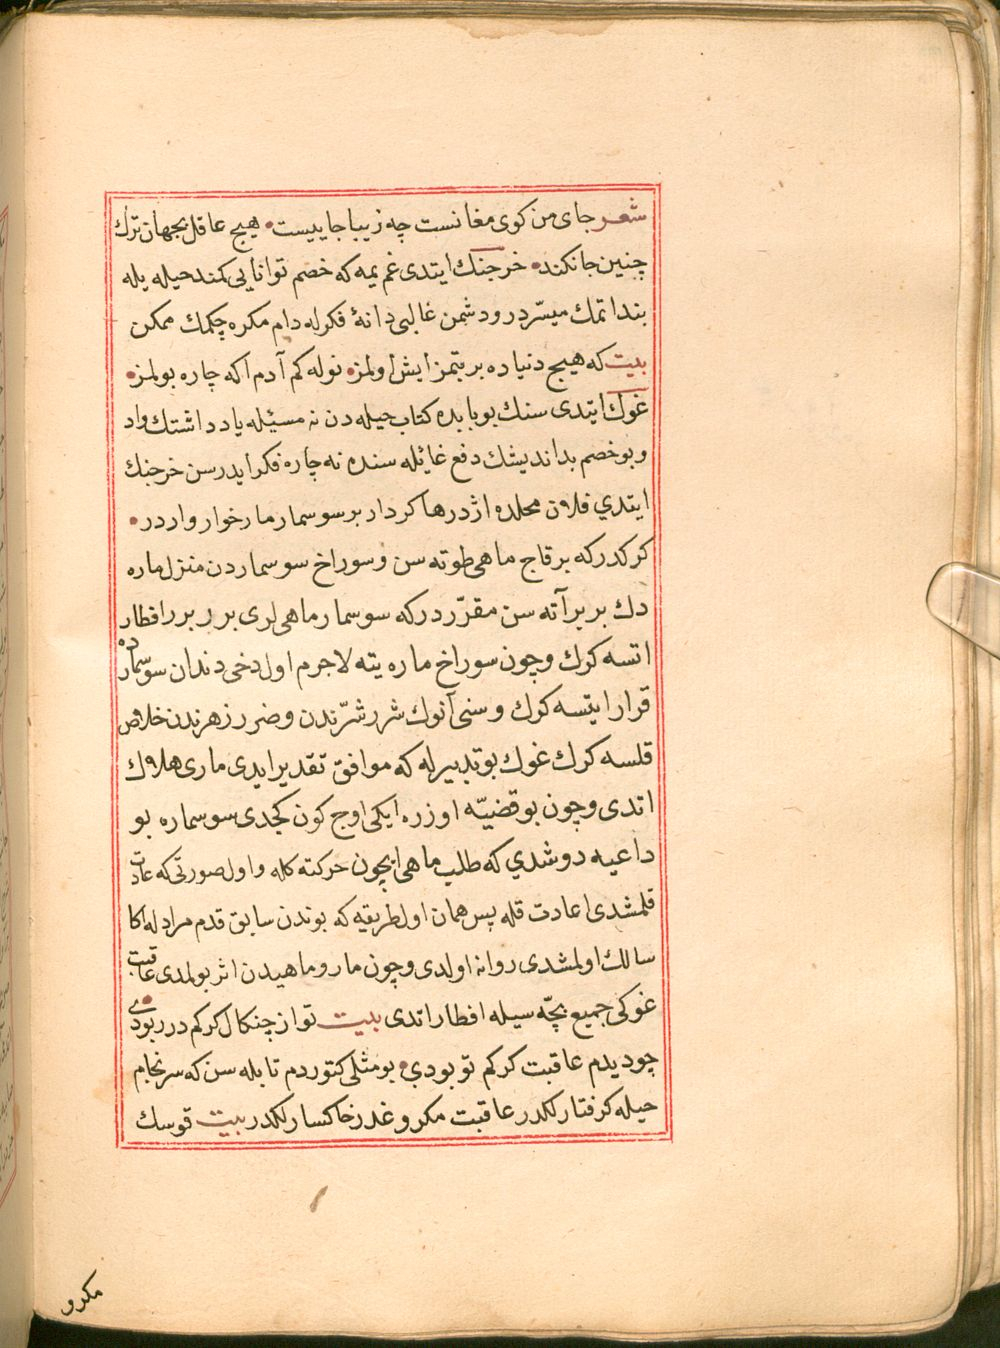 شعر جای من کوی مغانست چه زیبا جاییست هیچ عاقل بجهان ترك
چنین جا نکند خرجنك ایتدی غم یمه که خصم توانایی کمند حیله یله
بند اتمك میسّردر و دشمن غالبی دانهٔ فکرله دام مکره چکمك ممکن
بیت که هیچ دنیاده بر بتمز ایش اولمز نوله کم آدم اکه چاره بولمز
غوك ایتدی سنك بو بابده کتاب حیله دن نه مسئله یاد داشتك واد
و بو خصم بد اندیشك دفع غائله سنده نه چاره فکر ایدرسن خرجنك
ایتدي فلان محلده اژدرها کردار بر سوسمار مار خوار واردر
کرکدرکه بر قاچ ماهی طوته سن و سوراخ سوسماردن منزل ماره
دك بربر آته سن مقرّردرکه سوسمار ماهی لری برر برر افطار
اتسه کرك و چون سوراخ ماره یته لاجرم اول دخی دندان سوسمارده
قرار ایتسه کرك و سنی آنوك شرر شرّندن و ضرر زهرندن خلاص
قلسه کرك غوك بو تدبیرله که موافق تقدیر ایدی ماری هلاك
اتدی و چون بو قضیّه اوزره ایکی اوج کون کجدی سوسماره بو
داعیه دوشدي که طلب ماهی ایچون حرکته کله و اول صورتی که عادت
قلمشدی اعادت قله پس همان اول طریقه که بوندن سابق قدم مرادله اکا
سالك اولمشدی روانه اولدی و چون مار و ماهیدن اثر بولمدی عاقبت
غوکی جمیع بچّه سیله افطار اتدی بیت تو از چنکال کرکم در ربودی
چو دیدم عاقبت کرکم تو بودي بو مثلی کتوردم تا بله سن که سرنجام
حیله کرفتارلكدر عاقبت مکر و غدر خاکسارلكدر بیت قوسك
مکرو